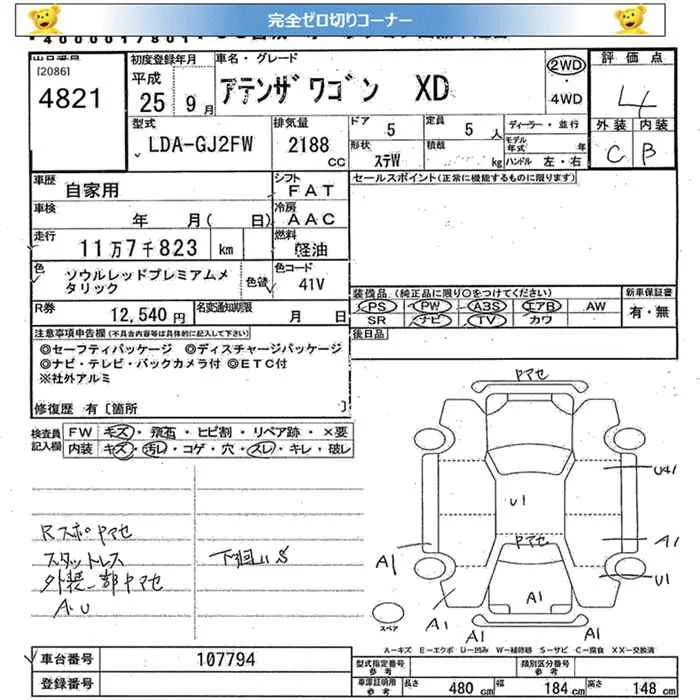 完全ゼロ切りコーナー
[2086]
4821
初度登録年月
平成
25 9月
車名・グレード
アテンザワゴン XD
2WD
・
4WD
評価点
4
外装 内装
C B
型式
LDA-GJ2FW
排気量
2188 CC
ドア 5
定員 5 人
形状 ステW
積載 kg
ディーラー・並行
モデル年式 年
ハンドル 左・右
車歴
自家用
シフト
FAT
セールスポイント(正常に機能するものに限ります)
車検
年 月( 日)
冷房
AAC
走行
11万7千823 km
燃料
軽油
色
ソウルレッドプレミアムメタリック
色替
色コード
41V
装備品 (純正品に限り〇をつけてください)
PS PW A3S エアB AW
SR ナビ TV カワ
新車保証書
有・無
R券
12,540円
名変通知期限
月 日
後日品
注意事項申告欄(不具合内容等は具体的に記入して下さい)
◎セーフティパッケージ ◎ディスチャージパッケージ
◎ナビ・テレビ・バックカメラ付 ◎ETC付
※社外アルミ
修復歴 有〔箇所 〕
検査員記入欄
FW キズ・飛石・ヒビ割・リペア跡・×要
内装 キズ・汚レ・コゲ・穴・スレ・キレ・破レ
Rスポヤマセ
スタットレス
外装一部ヤマセ
AU
下廻りS
ヤマセ
U1
ヤマセ
A1
U41
A1
U1
A1
A1
A1
スペア
A-キズ E-エクボ U-凹み W-補修跡 S-サビ C-腐食 XX-交換済
車台番号
107794
登録番号
型式指定番号 参考
類別区分番号 参考
車庫証明用 参考
長さ 480 cm
幅 184 cm
高さ 148 cm